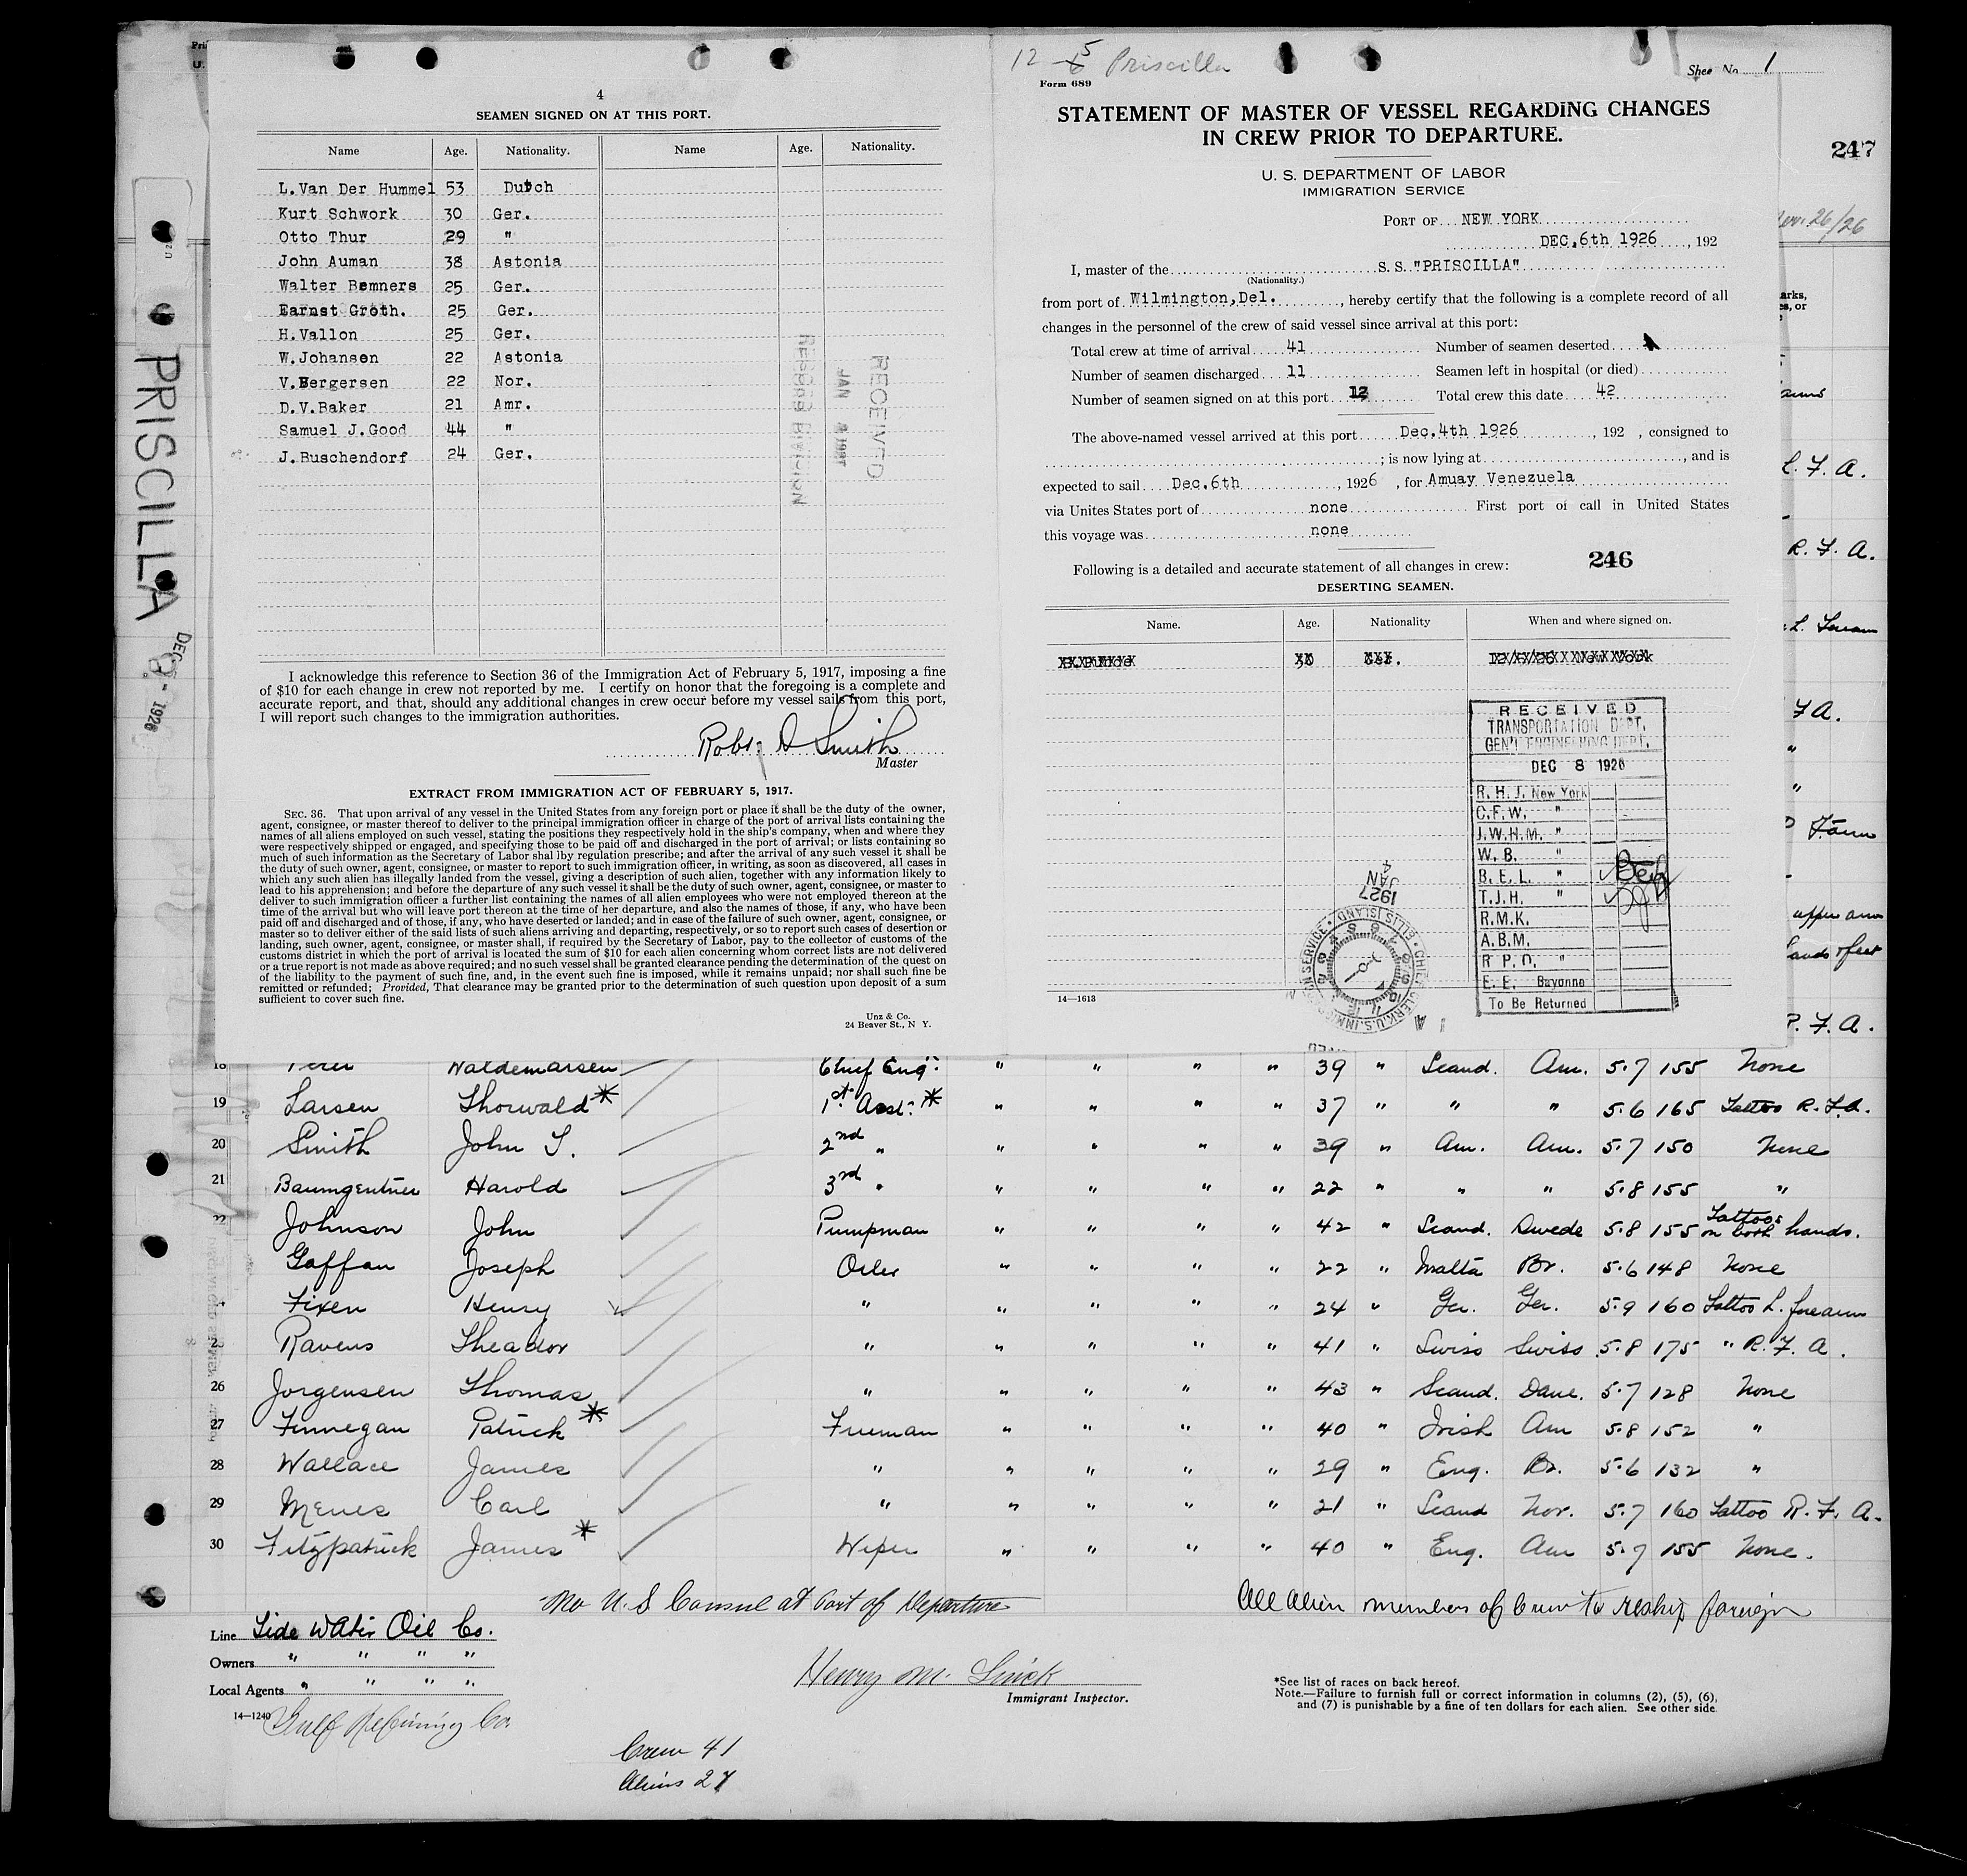 PRISCILLA
DEC 1926
4
SEAMEN SIGNED ON AT THIS PORT.
Name Age. Nationality. Name Age. Nationality.
L.Van Der Hummel 53 Dutch
Kurt Schwork 30 Ger.
Otto Thur 29 "
John Auman 38 Astonia
Walter Bemners 25 Ger.
Earnst Groth. 25 Ger.
H.Vallon 25 Ger.
W.Johansen 22 Astonia
V.Bergersen 22 Nor.
D.V.Baker 21 Amr.
Samuel J.Good 44 "
J.Buschendorf 24 Ger.
RECEIVED
JAN 1927
RECORD DIVISION
I acknowledge this reference to Section 36 of the Immigration Act of February 5, 1917, imposing a fine
of $10 for each change in crew not reported by me. I certify on honor that the foregoing is a complete and
accurate report, and that, should any additional changes in crew occur before my vessel sails from this port,
I will report such changes to the immigration authorities.
Robt D Smith
Master
EXTRACT FROM IMMIGRATION ACT OF FEBRUARY 5, 1917.
SEC. 36. That upon arrival of any vessel in the United States from any foreign port or place it shall be the duty of the owner,
agent, consignee, or master thereof to deliver to the principal immigration officer in charge of the port of arrival lists containing the
names of all aliens employed on such vessel, stating the positions they respectively hold in the ship's company, when and where they
were respectively shipped or engaged, and specifying those to be paid off and discharged in the port of arrival; or lists containing so
much of such information as the Secretary of Labor shal lby regulation prescribe; and after the arrival of any such vessel it shall be
the duty of such owner, agent, consignee, or master to report to such immigration officer, in writing, as soon as discovered, all cases in
which any such alien has illegally landed from the vessel, giving a description of such alien, together with any information likely to
lead to his apprehension; and before the departure of any such vessel it shall be the duty of such owner, agent, consignee, or master to
deliver to such immigration officer a further list containing the names of all alien employees who were not employed thereon at the
time of the arrival but who will leave port thereon at the time of her departure, and also the names of those, if any, who have been
paid off and discharged and of those, if any, who have deserted or landed; and in case of the failure of such owner, agent, consignee, or
master so to deliver either of the said lists of such aliens arriving and departing, respectively, or so to report such cases of desertion or
landing, such owner, agent, consignee, or master shall, if required by the Secretary of Labor, pay to the collector of customs of the
customs district in which the port of arrival is located the sum of $10 for each alien concerning whom correct lists are not delivered
or a true report is not made as above required; and no such vessel shall be granted clearance pending the determination of the quest on
of the liability to the payment of such fine, and, in the event such fine is imposed, while it remains unpaid; nor shall such fine be
remitted or refunded; Provided, That clearance may be granted prior to the determination of such question upon deposit of a sum
sufficient to cover such fine.
Unz & Co.
24 Beaver St., N Y.
12 5 Priscilla
Form 689
Sheet No. 1
STATEMENT OF MASTER OF VESSEL REGARDING CHANGES
IN CREW PRIOR TO DEPARTURE.
U. S. DEPARTMENT OF LABOR
IMMIGRATION SERVICE
PORT OF NEW YORK
DEC.6th 1926 , 192
I, master of the S.S."PRISCILLA"
(Nationality.)
from port of Wilmington,Del. , hereby certify that the following is a complete record of all
changes in the personnel of the crew of said vessel since arrival at this port:
Total crew at time of arrival 41 Number of seamen deserted
Number of seamen discharged 11 Seamen left in hospital (or died)
Number of seamen signed on at this port 12 Total crew this date 42
The above-named vessel arrived at this port Dec.4th 1926 , 192 , consigned to
; is now lying at , and is
expected to sail Dec.6th , 1926 , for Amuay Venezuela
via Unites States port of none First port of call in United States
this voyage was none
Following is a detailed and accurate statement of all changes in crew: 246
DESERTING SEAMEN.
Name. Age. Nationality When and where signed on.
RECEIVED
TRANSPORTATION DEPT.
GEN'L ENGINEERING DEPT.
DEC 8 1926
R. H. J. New York
C.F.W.
J.W.H.M. "
W. B. "
B. E. L. "
T.J.H. "
R.M.K.
A.B.M.
R P.O. "
E. E. Bayonne
To Be Returned
1927 JAN 4
CHIEF CLERK U.S. IMMIGRATION SERVICE ELLIS ISLAND
14—1613
247
26/26
L. F. A.
R. F. A.
FA.
"
"
upper arm
hands & feet
R. F. A.
18 Peter Waldemarsen Chief Eng. " " " " 39 " Scand. Am. 5.7 155 None
19 Larsen Thorwald* 1st Asst. * " " " " 37 " " " 5.6 165 Tattoo R.F.A.
20 Smith John T. 2nd " " " " " 39 " Am. Am. 5.7 150 None
21 Baumgentner Harold 3rd " " " " " 22 " " " 5.8 155 "
22 Johnson John Pumpman " " " " 42 " Scand. Swede 5.8 155 Tattoos on both hands.
Gaffan Joseph Oiler " " " " 22 " Malta Br. 5.6 148 None
Fixen Henry " " " " " 24 " Ger. Ger. 5.9 160 Tattoo L. forearm
25 Ravens Theador " " " " " 41 " Swiss Swiss 5.8 175 " R. F. A.
26 Jorgensen Thomas " " " " " 43 " Scand. Dane. 5.7 128 None
27 Finnegan Patrick* Fireman " " " " 40 " Irish Am 5.8 152 "
28 Wallace James " " " " " 29 " Eng. Br. 5.6 132 "
29 Menes Carl " " " " " 21 " Scand Nor. 5.7 160 Tattoo R. F. A.
30 Fitzpatrick James* Wiper " " " " 40 " Eng. Am 5.7 155 None.
No U.S Consul at Port of Departure
All Alien members of Crew to reship foreign
Line Tide Water Oil Co.
Owners " " " "
Local Agents " " " "
14—1240
Gulf Refining Co.
Henry M.
Immigrant Inspector.
*See list of races on back hereof.
Note.—Failure to furnish full or correct information in columns (2), (5), (6),
and (7) is punishable by a fine of ten dollars for each alien. See other side.
Crew 41
Aliens 27